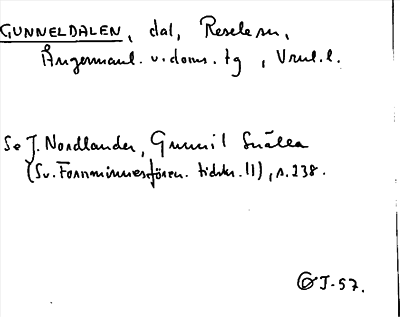 GUNNELDALEN, dal, Resele sn,
Ångermanl. v. doms. tg, Vnul. l.
Se J. Nordlander, Gunnil Snälla
(Sv. Fornminnesfören. tidskr. 11), s. 238.
J-57.